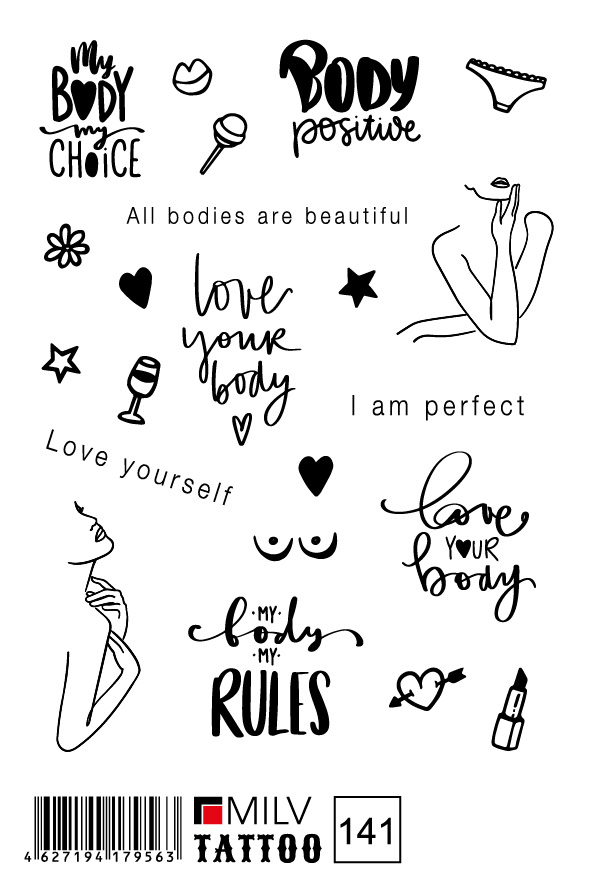 My
BODY
my
CHOiCE
BODY
positive
All bodies are beautiful
love
your
body
I am perfect
Love yourself
love
YOUR
body
·MY·
body
·MY·
RULES
4 627194 179563
MILV
TATTOO
141